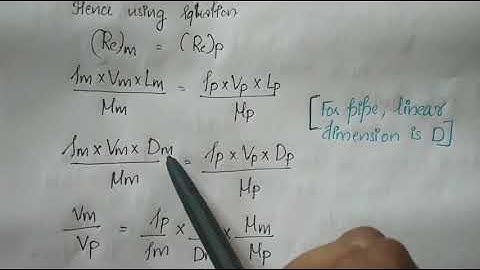 Hence using Equation
(Re)m = (Re)p
ρm × Vm × Lm / μm = ρp × Vp × Lp / μp
[For pipe, linear
dimension is D]
ρm × Vm × Dm / μm = ρp × Vp × Dp / μp
Vm / Vp = ρp / ρm × / D × μm / μp